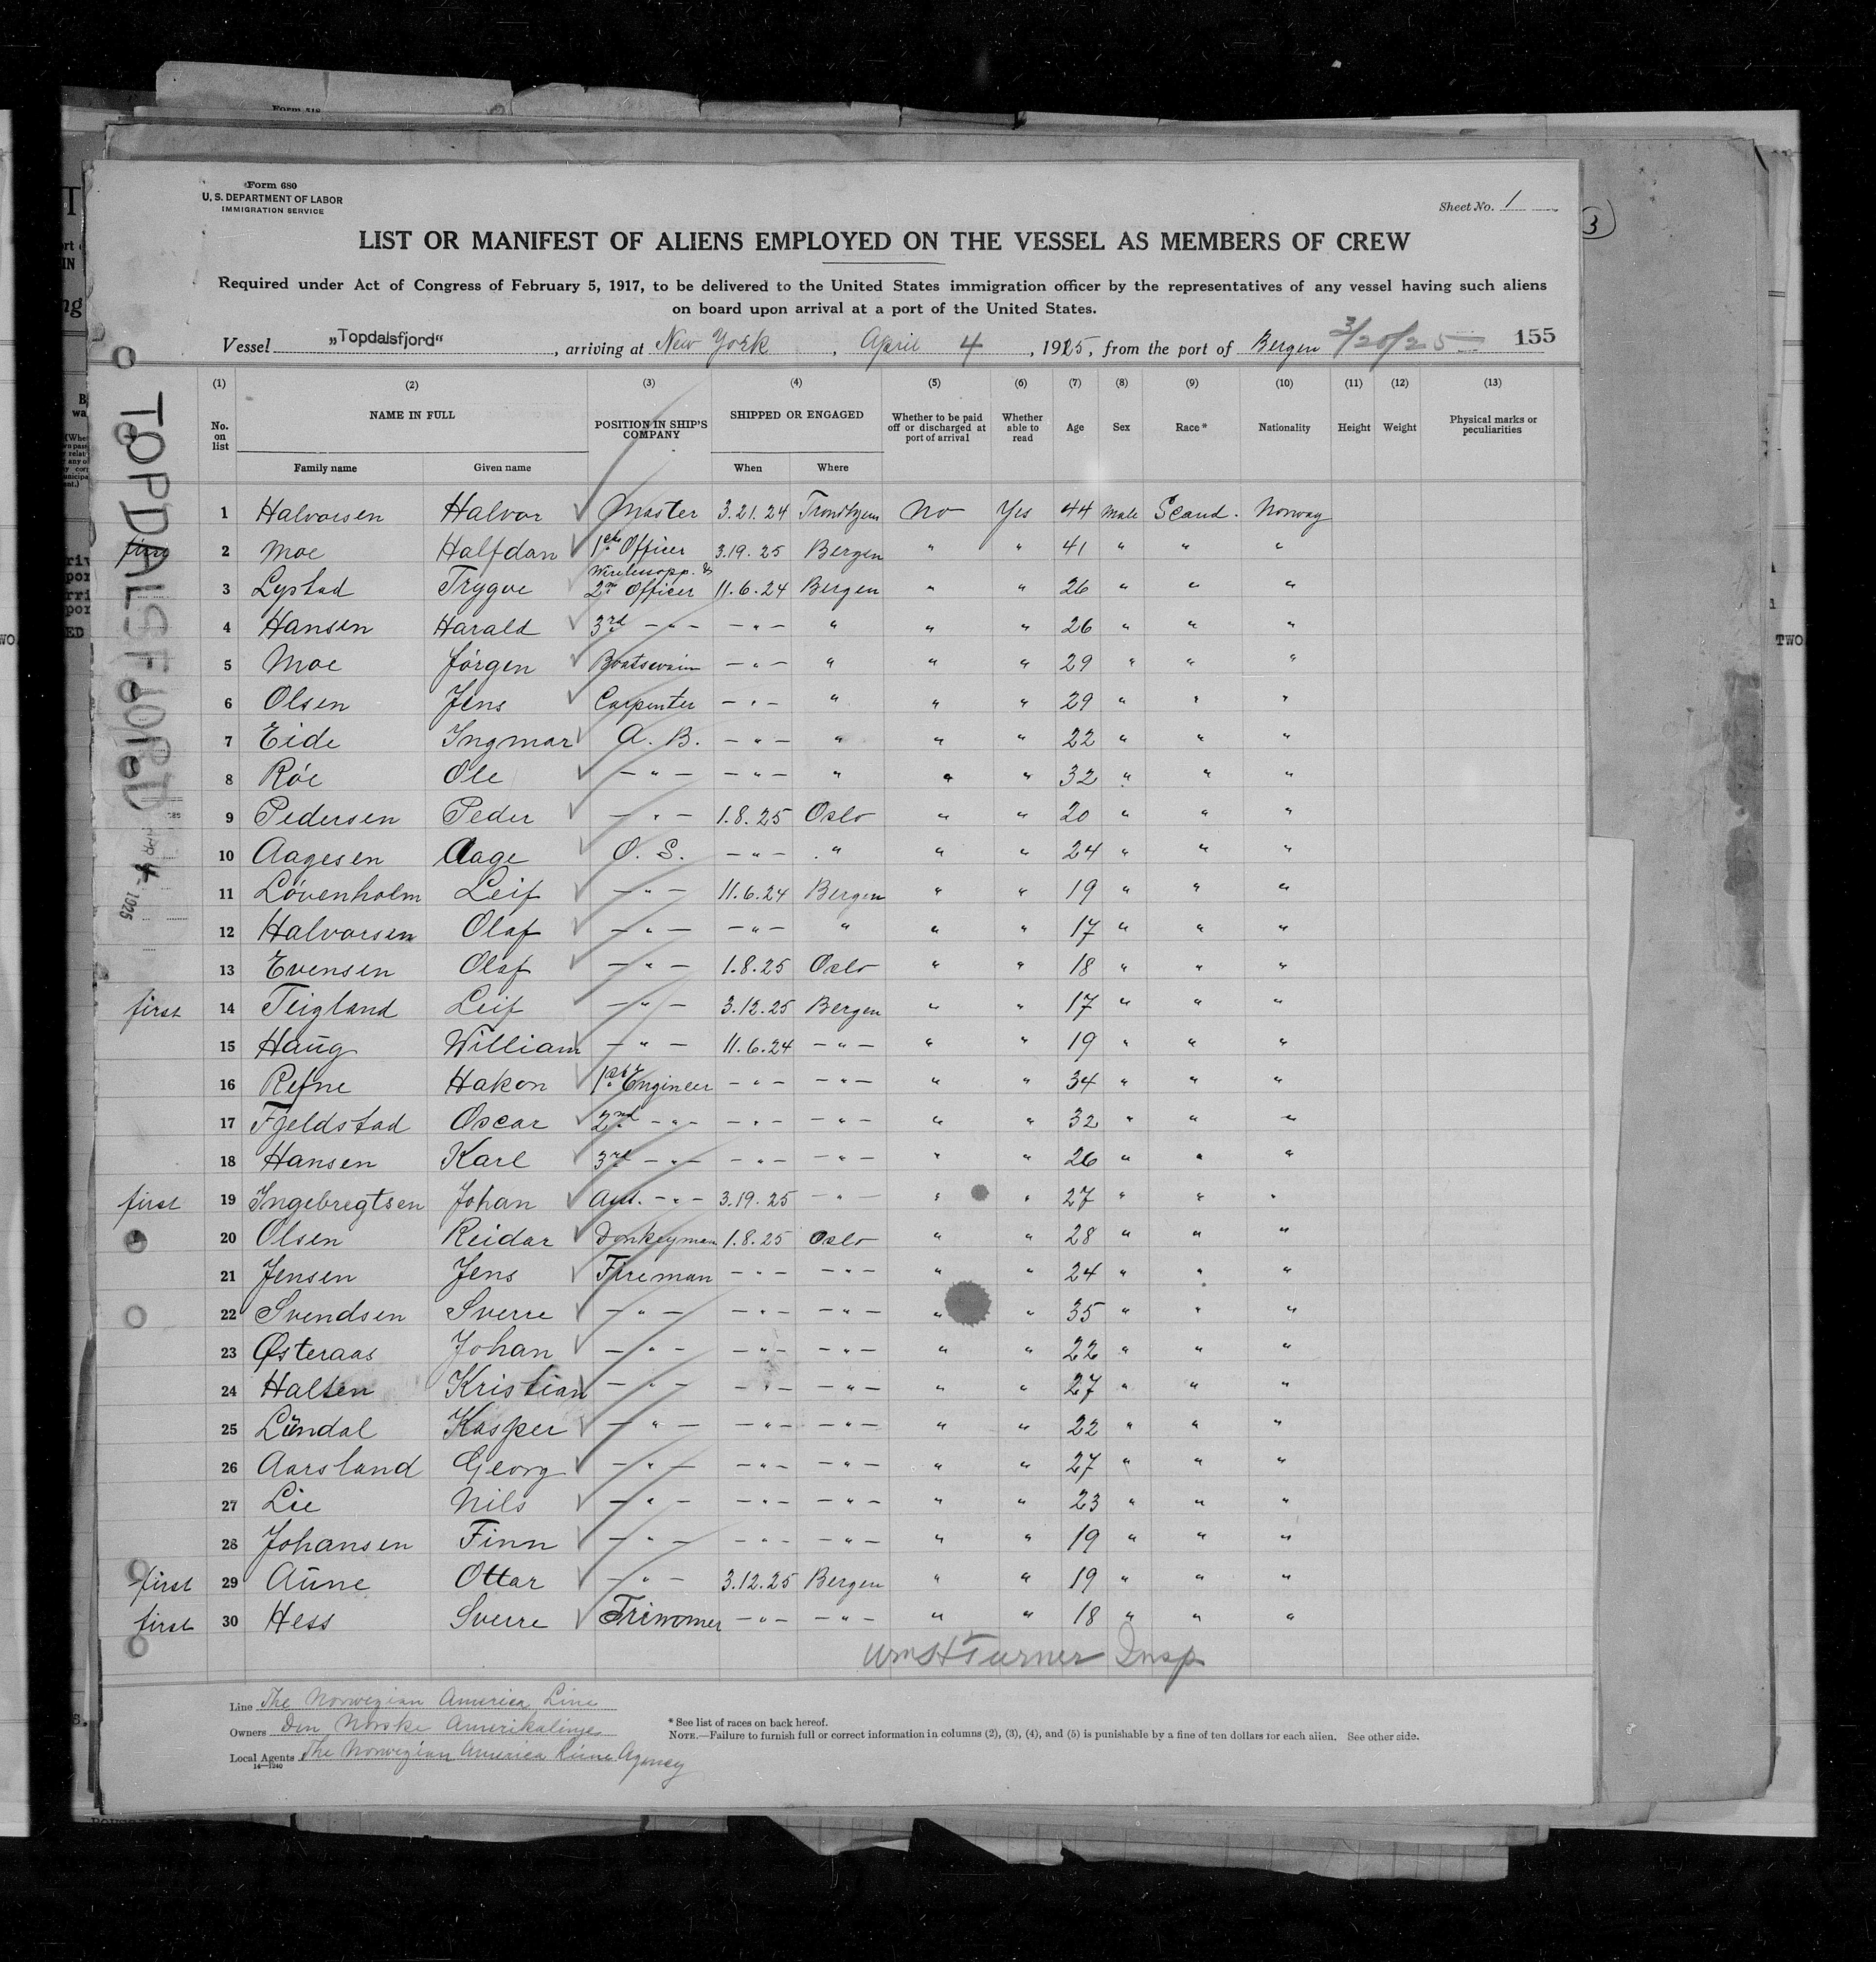 Form 680
U. S. DEPARTMENT OF LABOR
IMMIGRATION SERVICE
Sheet No. 1
3
LIST OR MANIFEST OF ALIENS EMPLOYED ON THE VESSEL AS MEMBERS OF CREW
Required under Act of Congress of February 5, 1917, to be delivered to the United States immigration officer by the representatives of any vessel having such aliens
on board upon arrival at a port of the United States.
Vessel „Topdalsfjord“, arriving at New York, April 4, 1925, from the port of Bergen 3/20/25 155
TOPDALSFJORD
APR 4 - 1925
(1) (2) (3) (4) (5) (6) (7) (8) (9) (10) (11) (12) (13)
No. on list NAME IN FULL POSITION IN SHIP'S COMPANY SHIPPED OR ENGAGED Whether to be paid off or discharged at port of arrival Whether able to read Age Sex Race* Nationality Height Weight Physical marks or peculiarities
Family name Given name When Where
1 Halvorsen Halvor Master 3.21.24 Trondhjem No Yes 44 Male Scand. Norway
2 Moe Halfdan 1st Officer 3.19.25 Bergen " " 41 " " "
3 Lystad Trygve Wirelessopp. & 2nd Officer 11.6.24 Bergen " " 26 " " "
4 Hansen Harald 3rd — " — — " — " " " 26 " " "
5 Moe Jörgen Boatswain — " — " " " 29 " " "
6 Olsen Jens Carpenter — " — " " " 29 " " "
7 Eide Ingmar A. B. — " — " " " 22 " " "
8 Röe Ole — " — — " — " " " 32 " " "
9 Pedersen Peder — " — 1.8.25 Oslo " " 20 " " "
10 Aagesen Aage O. S. — " — " " " 24 " " "
11 Lövenholm Leif — " — 11.6.24 Bergen " " 19 " " "
12 Halvorsen Olaf — " — — " — " " " 17 " " "
13 Evensen Olaf — " — 1.8.25 Oslo " " 18 " " "
first 14 Teigland Leif — " — 3.12.25 Bergen " " 17 " " "
15 Haug William — " — 11.6.24 — " — " " 19 " " "
16 Refne Hakon 1st Engineer — " — — " — " " 34 " " "
17 Fjeldstad Oscar 2nd — " — — " — — " — " " 32 " " "
18 Hansen Karl 3rd — " — — " — — " — " " 26 " " "
first 19 Ingebregtsen Johan Ass. — " — 3.19.25 — " — " " 27 " " "
20 Olsen Reidar Donkeyman 1.8.25 Oslo " " 28 " " "
21 Jensen Jens Fireman — " — — " — " " 24 " " "
22 Svendsen Sverre — " — — " — — " — " " 35 " " "
23 Østeraas Johan — " — — " — — " — " " 22 " " "
24 Halsen Kristian — " — — " — — " — " " 27 " " "
25 Lindal Kasper — " — — " — — " — " " 22 " " "
26 Aarsland Georg — " — — " — — " — " " 27 " " "
27 Lie Nils — " — — " — — " — " " 23 " " "
28 Johansen Finn — " — — " — — " — " " 19 " " "
first 29 Aune Ottar — " — 3.12.25 Bergen " " 19 " " "
first 30 Hess Sverre Trimmer — " — — " — " " 18 " " "
Wm H Turner Insp
Line The Norwegian America Line
Owners Den Norske Amerikalinje
Local Agents The Norwegian America Line Agency
14—1240
* See list of races on back hereof.
NOTE.—Failure to furnish full or correct information in columns (2), (3), (4), and (5) is punishable by a fine of ten dollars for each alien. See other side.